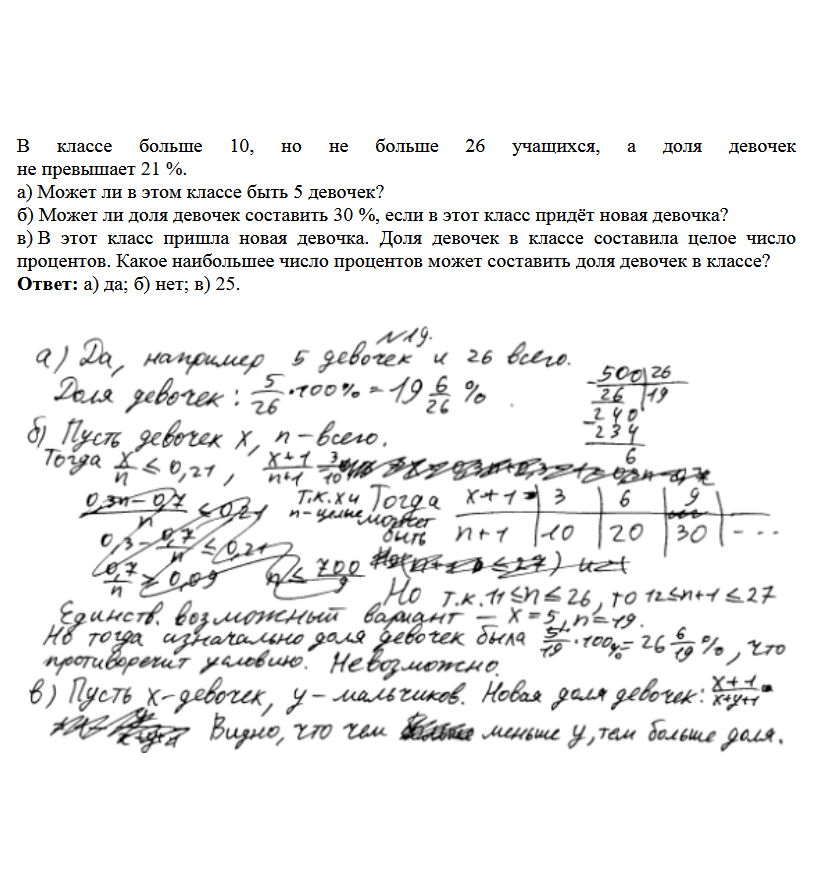 В классе больше 10, но не больше 26 учащихся, а доля девочек
не превышает 21 %.
а) Может ли в этом классе быть 5 девочек?
б) Может ли доля девочек составить 30 %, если в этот класс придёт новая девочка?
в) В этот класс пришла новая девочка. Доля девочек в классе составила целое число
процентов. Какое наибольшее число процентов может составить доля девочек в классе?
Ответ: а) да; б) нет; в) 25.
№19.
а) Да, например 5 девочек и 26 всего.
Доля девочек: 5/26 · 100% = 19 6/26 %.
500 | 26
26 | 19
240
234
6
б) Пусть девочек x, n – всего.
Тогда x/n ≤ 0,21, x+1/n+1 3/10
0,3n – 0,7/n ≤ 0,21
0,3 – 0,7/n ≤ 0,21
0,7/n ≥ 0,09 n ≤ 700/9
т.к. x и n – целые Тогда может быть
x+1 | 3 | 6 | 9
n+1 | 10 | 20 | 30 | – ...
Но т.к. 11≤n≤26, то 12≤n+1≤27
Единств. возможный вариант – x=5, n=19.
Но тогда изначально доля девочек была 5/19 · 100% = 26 6/19 %, что
противоречит условию. Невозможно.
в) Пусть x – девочек, y – мальчиков. Новая доля девочек: x+1/x+y+1
Видно, что чем меньше y, тем больше доля.